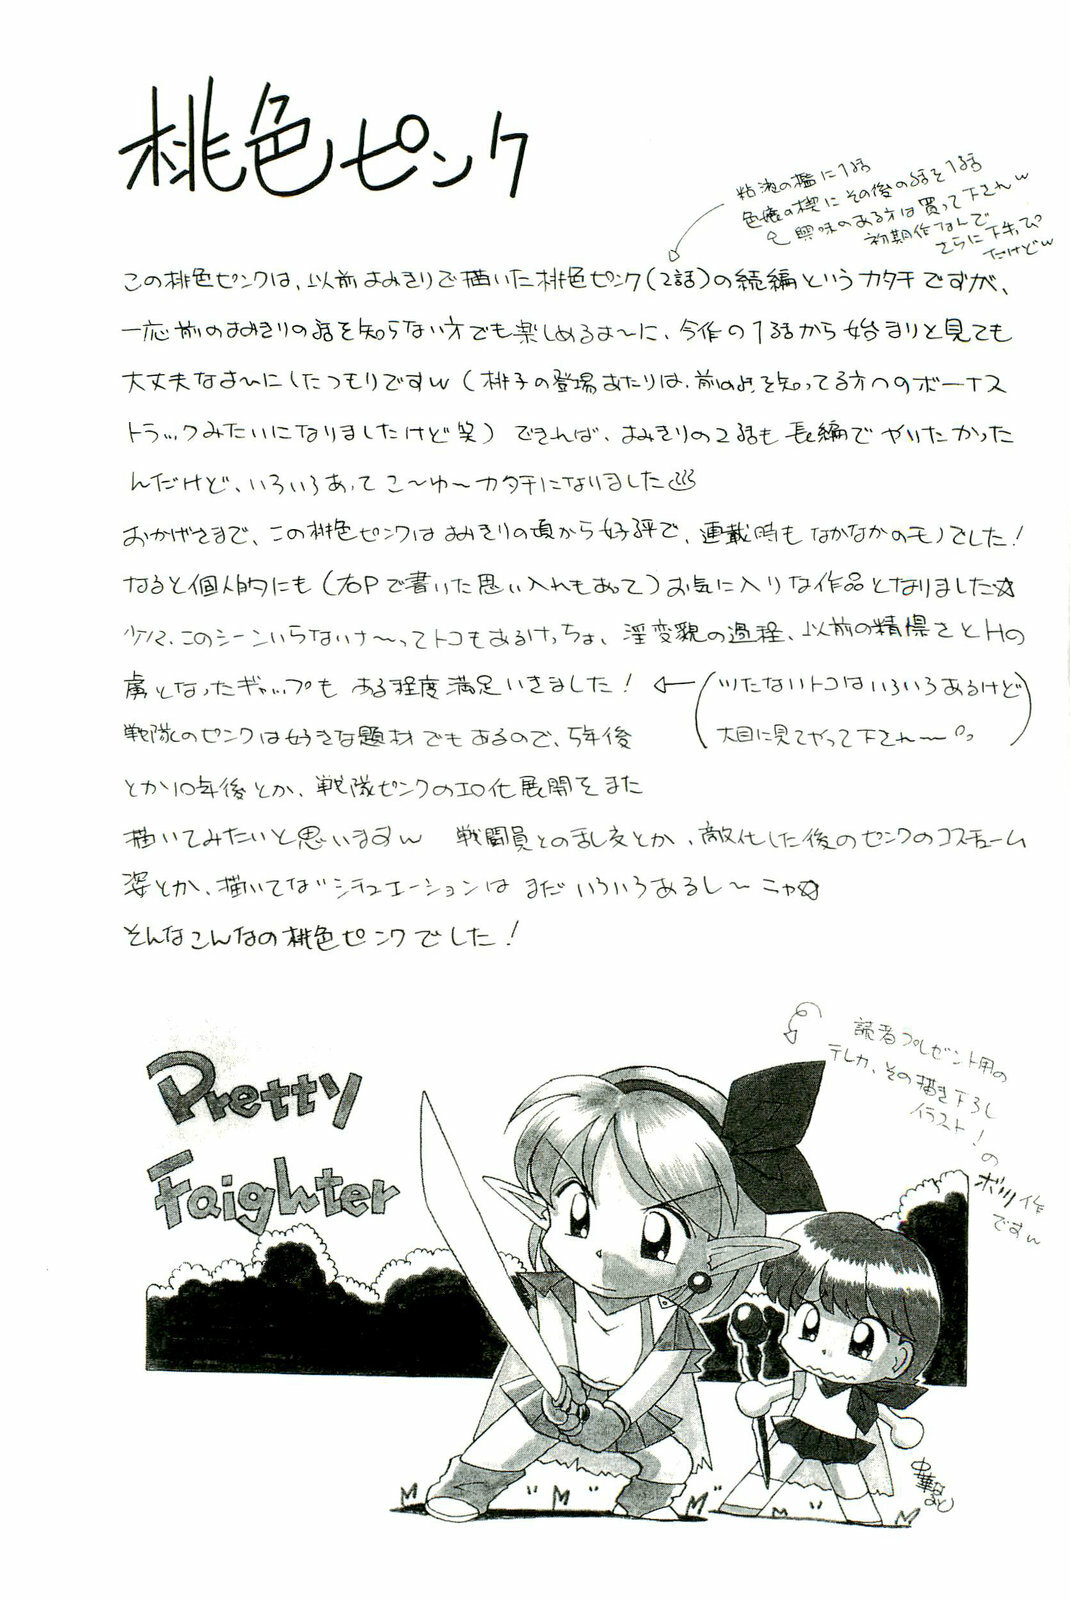 桃色ピンク
粘液の檻に1話
色癒の楔にその後の話を1話
興味のある方は買って下されw
初期作なんで
さらに下手っぴ
だけどw
この桃色ピンクは、以前よみきりで描いた桃色ピンク(2話)の続編というカタチですが、
一応前のよみきりの話を知らない方でも楽しめるよ〜に、今作の1話から始まりと見ても
大丈夫なよ〜にしたつもりですw(桃子の登場あたりは、前の話を知ってる方へのボーナス
トラックみたいになりましたけど笑)できれば、よみきりの2話も長編でやりたかった
んだけど、いろいろあってこ〜ゆ〜カタチになりました
おかげさまで、この桃色ピンクはよみきりの頃から好評で、連載時もなかなかのモノでした!
なると個人的にも(右Pで書いた思い入れもあって)お気に入りな作品となりました☆
少々、このシーンいらないナ〜ってトコもあるけっちょ、淫変貌の過程、以前の精悍さとHの
虜となったギャップも ある程度満足いきました! ←(ツたないトコはいろいろあるけど
大目に見てやって下され〜)
戦隊のピンクは好きな題材でもあるので、5年後
とか10年後とか、戦隊ピンクのエロ化展開をまた
描いてみたいと思いますw 戦闘員との乱交とか、敵化した後のピンクのコスチューム
姿とか、描いてないシチュエーションは まだいろいろあるし〜ニャ☆
そんなこんなの桃色ピンクでした!
読者プレゼント用の
テレカ、その描き下ろし
イラスト!
の
ボツ作
ですw
Pretty
Faighter
中華なると